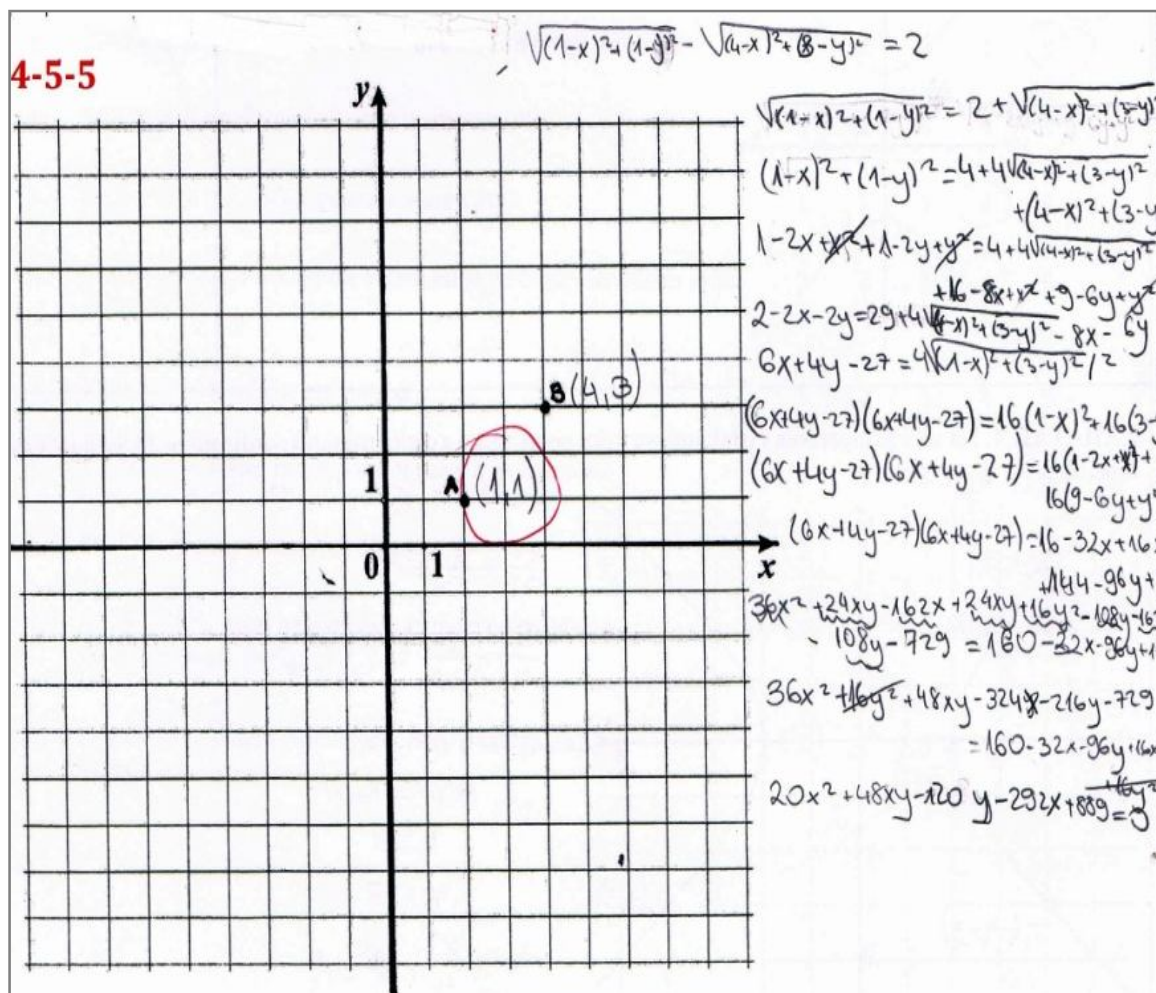 √(1-x)²+(1-y)² - √(4-x)²+(3-y)² = 2
4-5-5
y
√(1-x)²+(1-y)² = 2 + √(4-x)²+(3-y)
(1-x)²+(1-y)² = 4+4√(4-x)²+(3-y)²
+(4-x)²+(3-y
1-2x+x²+1-2y+y² = 4+4√(4-x)²+(3-y)²
+16-8x+x²+9-6y+y²
2-2x-2y=29+4√(4-x)²+(3-y)² - 8x-6y
6x+4y-27 = 4√(1-x)²+(3-y)² /²
B (4,3)
(6x+4y-27)(6x+4y-27)=16(1-x)²+16(3-
(6x+4y-27)(6x+4y-27)=16(1-2x+x²)+
16(9-6y+y²
1 A (1,1)
(6x+4y-27)(6x+4y-27)=16-32x+16
0 1 x
+144-96y+
36x²+24xy-162x+24xy+16y²-108y-16
-108y-729 = 160-32x-96y+1
36x²+16y²+48xy-324x-216y-729
=160-32x-96y+16x
+16y²
20x²+48xy-120y-292x+889=